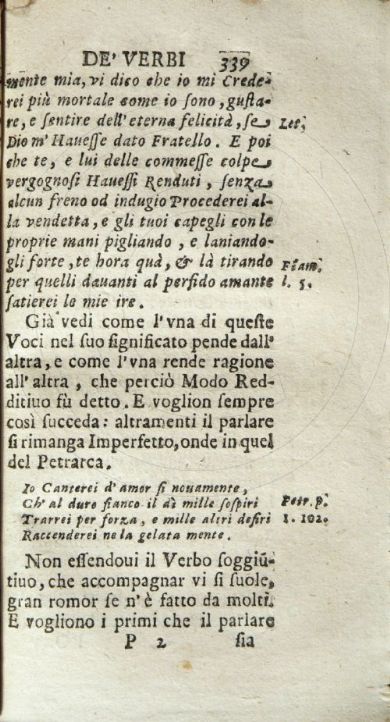 DE' VERBI 339
mente mia, vi dico che io mi Crede-
rei più mortale come io sono, gusta-
re, e sentire dell'eterna felicità, se
Let.
Dio m'Hauesse dato Fratello. E poi
che te, e lui delle commesse colpe
vergognosi Hauessi Renduti, senza
alcun freno od indugio Procederei al-
la vendetta, e gli tuoi capegli con le
proprie mani pigliando, e laniando-
gli forte, te hora quà, & là tirando
Fiam.
per quelli dauanti al perfido amante
l. 5.
satierei le mie ire.
Già vedi come l'vna di queste
Voci nel suo significato pende dall'
altra, e come l'vna rende ragione
all'altra, che perciò Modo Red-
ditiuo fù detto. E voglion sempre
così succeda: altramenti il parlare
si rimanga Imperfetto, onde in quel
del Petrarca.
Io Canterei d'amor sì nouamente,
Ch'al duro fianco il dì mille sospiri
Petr. p.
Trarrei per forza, e mille altri desiri
1. 102.
Raccenderei ne la gelata mente.
Non essendoui il Verbo soggiũ-
tiuo, che accompagnar vi si suole,
gran romor se n'è fatto da molti.
E vogliono i primi che il parlare
P 2 sia